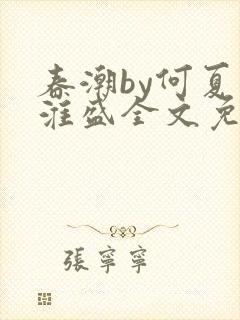 春潮by何夏
淮盛全文免
張寧寧